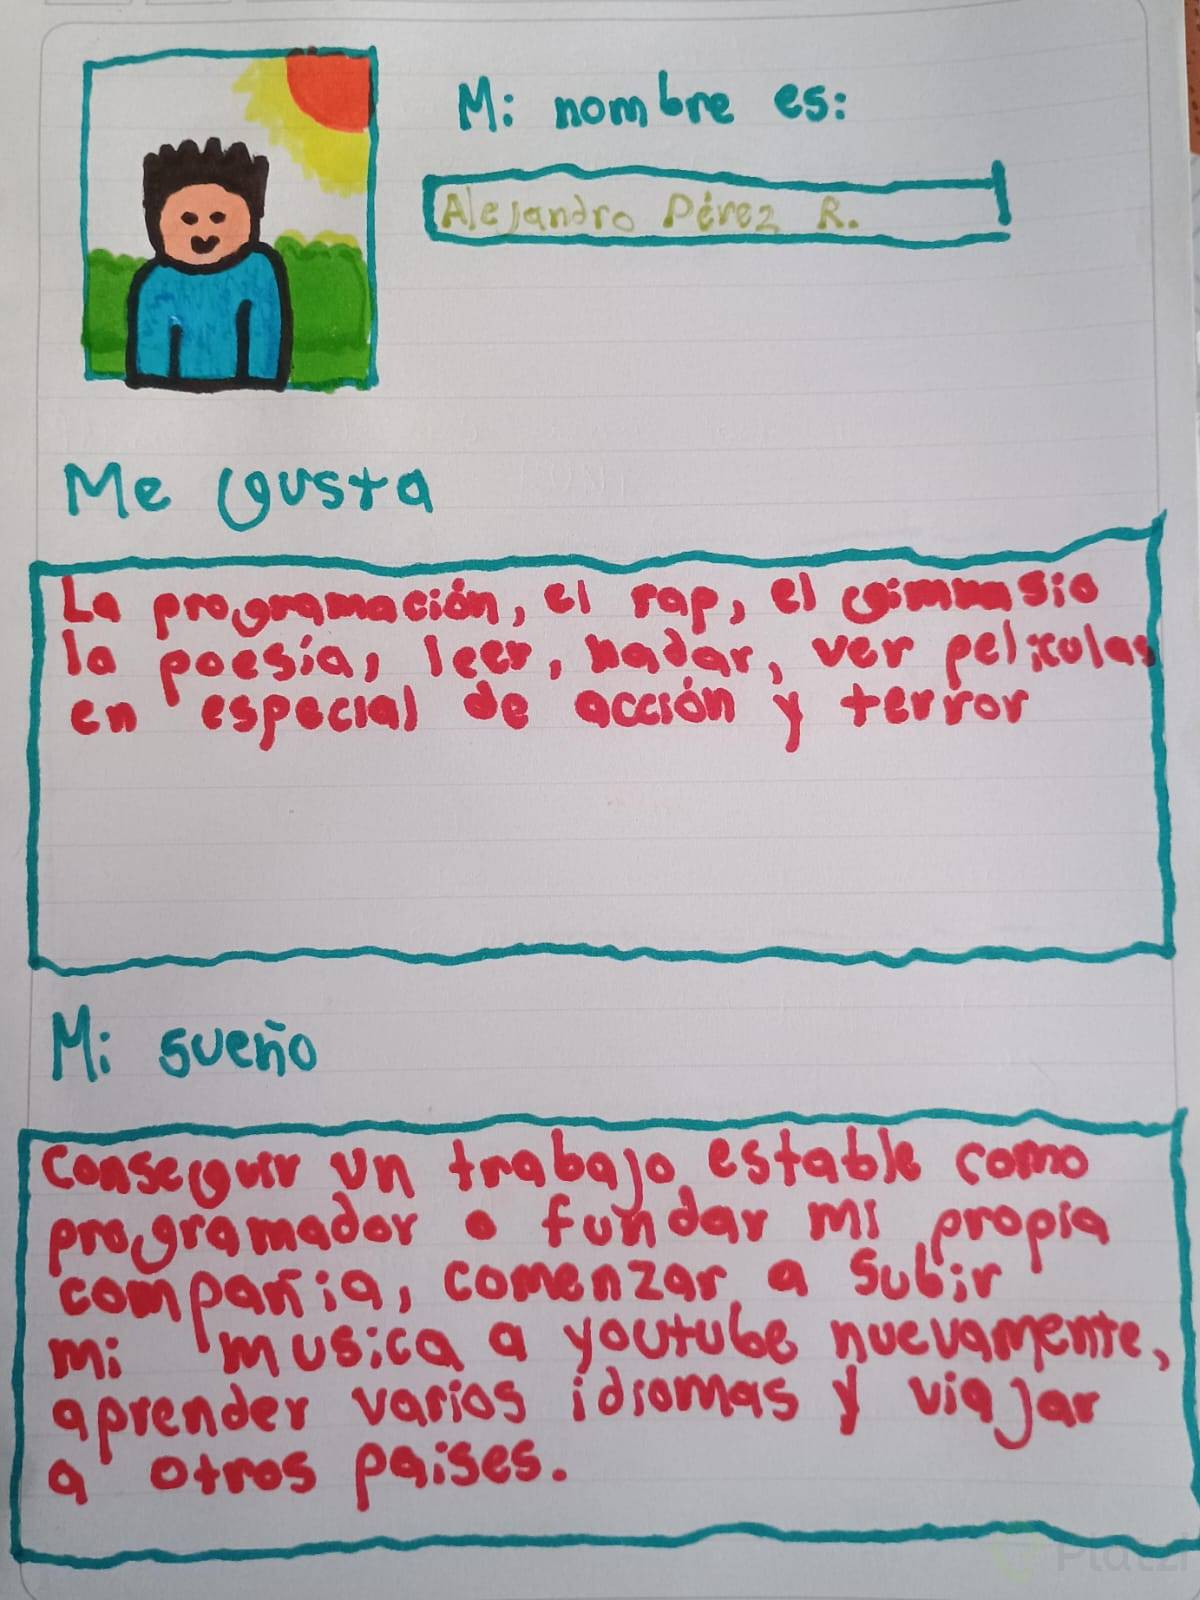 Mi nombre es:
Alejandro Pérez R.
Me Gusta
La programación, el rap, el Gimnasio
la poesía, leer, nadar, ver peliculas
en especial de acción y terror
Mi sueño
Conseguir un trabajo estable como
programador o fundar mi propia
compañia, comenzar a subir
mi musica a youtube nuevamente,
aprender varios idiomas y viajar
a otros paises.
Platzi